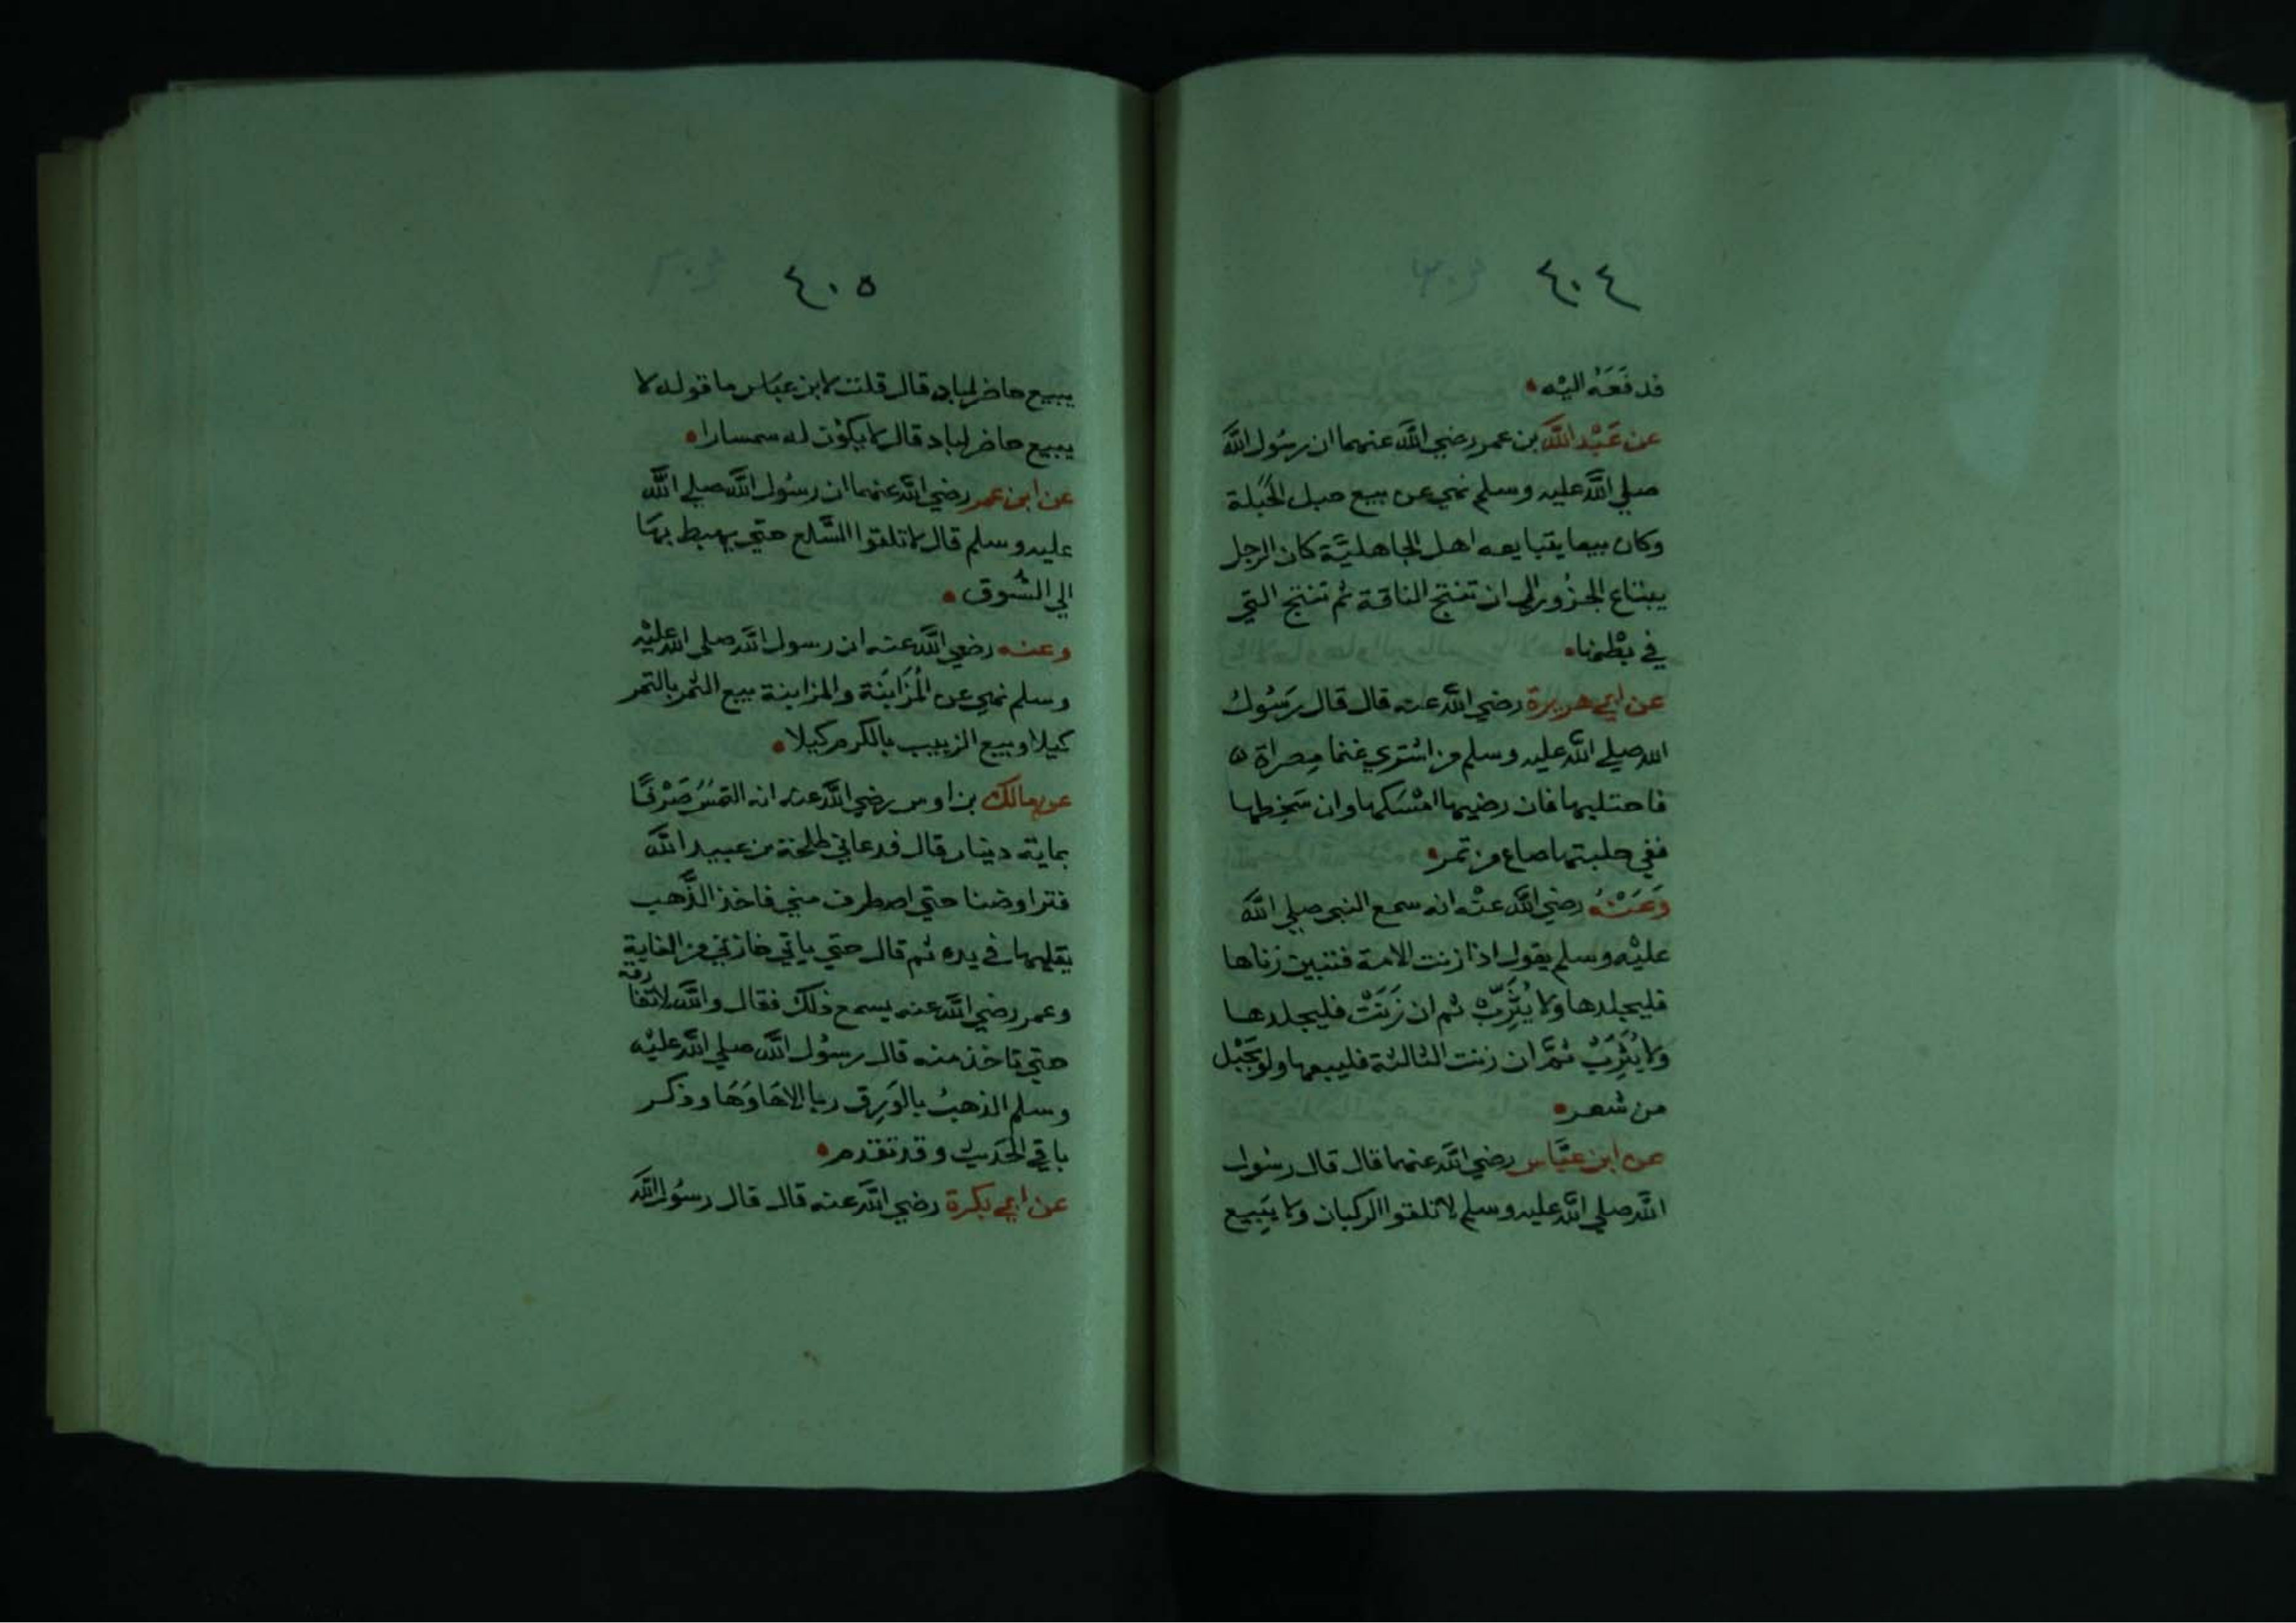 ٤٠٤
فدفَعَهُ اليْه
عن عَبْد اللَّه بن عمر رضي اللَّه عنهما ان رسُول اللَّه
صلي اللَّه عليه وسلم نهي عن بيع حبل الحَبَلة
وكان بيعا يتبايعه اهل الجاهليَّة كان الرجل
يبتاع الجزُور الي ان تنتج الناقة ثم تنتج التي
في بطْنها
عن ابي هريرة رضي اللَّه عنه قال قال رَسُولُ
الله صلي اللَّه عليه وسلم من اشتري غنما مِصراة
فاحتلبها فان رضيها امْسَكها وان سَخِطها
ففي حلبتها صاع من تمر
وَعَنْهُ رضي اللَّه عنْه انه سمع النبي صلي اللَّه
عليْه وسلم يقول اذا زنت الامة فتبين زناها
فليجلدها ولا يُثَرِّبْ ثم ان زَنَتْ فليجلدها
ولا يُثَرِبْ ثمَّ ان زنت الثالثة فليبعها ولو بحَبْل
من شعر
عن ابن عبَّاس رضي اللَّه عنهما قال قال رسُول
اللَّه صلي اللَّه عليه وسلم لا تلقوا الركبان ولا يَبيع
٤٠٥
يبيع حاضر لباد قال قلت لابن عبَاس ما قوله لا
يبيع حاضر لباد قال لا يكوْن له سمسارا
عن ابن عمر رضي اللَّه عنهما ان رسُول اللَّه صلي اللَّه
عليه وسلم قال لا تلقوا السَّلع حتي يهبط بهَا
الي السُّوق
وعنه رضي اللَّه عنه ان رسول اللَّه صلي اللَّه عليْه
وسلم نهي عن المُزَابَنَة والمزابنة بيع الثمر بالتمر
كيلا وبيع الزبيب بالكرم كيلا
عن مالك بن اوس رضي اللَّه عنه انه التمسَ صَرْفًا
بماية دينار قال فدعاني طلحة بن عبيد اللَّه
فتراوضنا حتي اصطرف مني فاخذ الذَّهب
يقلبها في يده ثم قال حتي ياتي خازني من الغابة
وعمر رضي اللَّه عنه يسمع ذلك فقال واللَّه لا تفارقه
حتي تاخذ منه قال رسُول اللَّه صلي اللَّه عليْه
وسلم الذهبُ بالوَرِق ربا الا هَا وَهَا وذكر
باقي الحَديث وقد تقدم
عن ابي بكرة رضي اللَّه عنه قال قال رسُول اللَّه